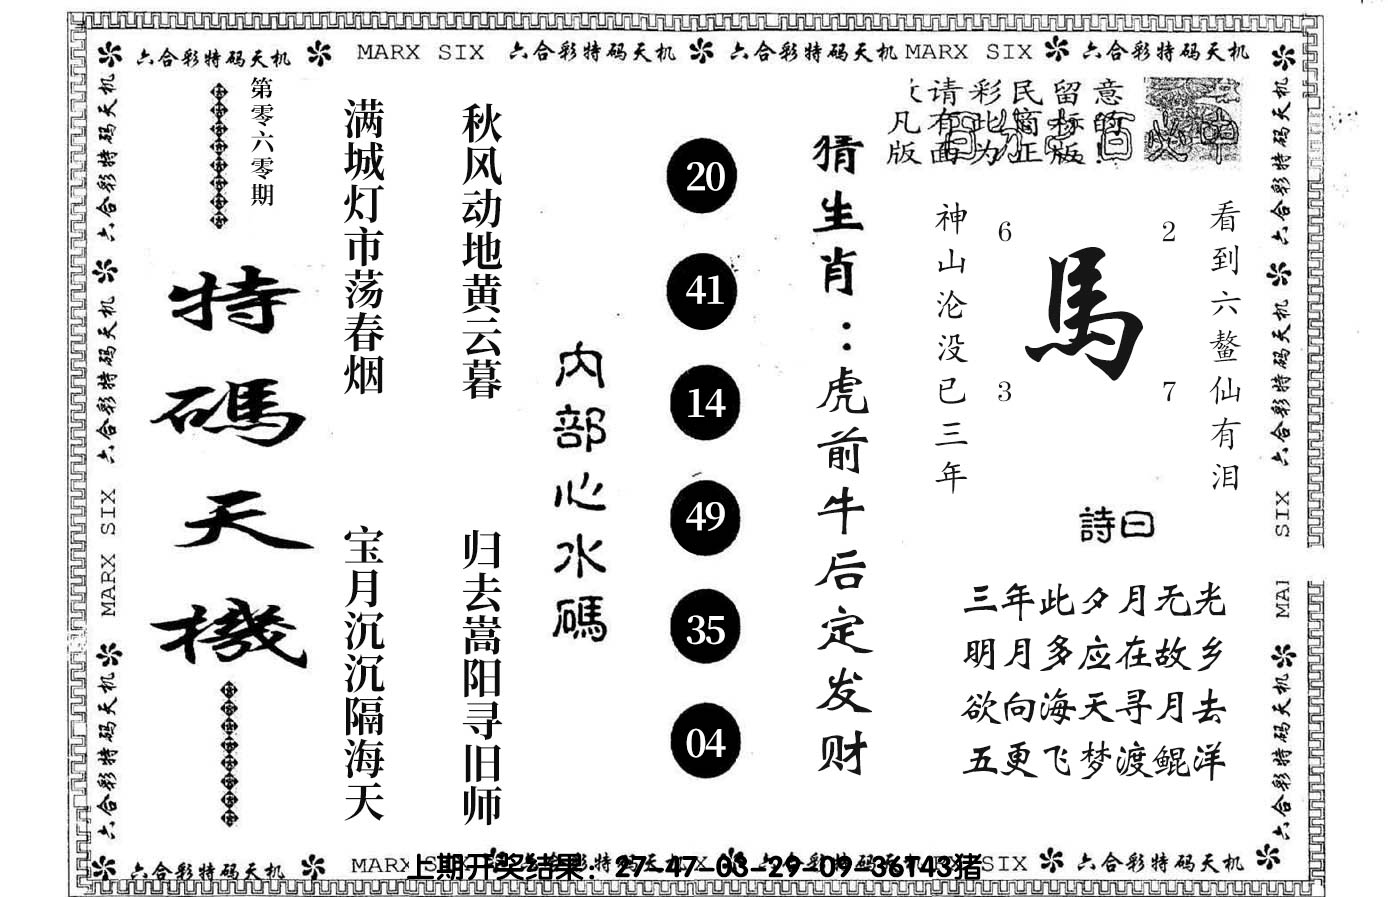 六合彩特码天机 MARX SIX 六合彩特码天机 六合彩特码天机 MARX SIX 六合彩特码天机
六合彩特码天机
六合彩特码天机
MARX SIX
六合彩特码天机
第零六零期
特碼天機
满城灯市荡春烟
宝月沉沉隔海天
秋风动地黄云暮
归去嵩阳寻旧师
内部心水碼
20
41
14
49
35
04
猜生肖：虎前牛后定发财
请彩民留意
凡有此商标的
版面为正版!
看到六鳌仙有泪
神山沦没已三年
6
2
馬
3
7
詩曰
三年此夕月无光
明月多应在故乡
欲向海天寻月去
五更飞梦渡鲲洋
六合彩特码天机
六合彩特码天机
SIX
六合彩特码天机
六合彩特码天机 MARX SIX
六合彩特码天机
上期开奖结果：27-47-03-29-09-36T43猪